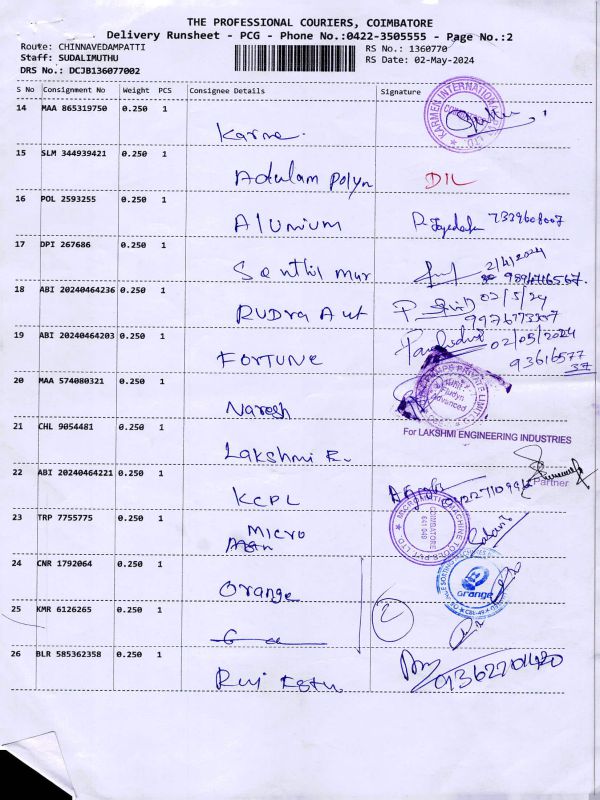 THE PROFESSIONAL COURIERS, COIMBATORE
Delivery Runsheet - PCG - Phone No.:0422-3505555 - Page No.:2
Route: CHINNAVEDAMPATTI
Staff: SUDALIMUTHU
DRS No.: DCJB136077002
RS No.: 1360770
RS Date: 02-May-2024
S No Consignment No Weight PCS Consignee Details Signature
14 MAA 865319750 0.250 1
Karme.
15 SLM 344939421 0.250 1
Adulam Polyn DIL
16 POL 2593255 0.250 1
Alumium 7329608007
17 DPI 267686 0.250 1
Senthil mur 2/4/2024
18 ABI 20240464236 0.250 1
RUDRA Aut 02/5/24
9976773207
19 ABI 20240464203 0.250 1
FORTUNE 02/05/2024
93616577
37
20 MAA 574080321 0.250 1
Naresh
Fludyn
Advanced
21 CHL 9054481 0.250 1
For LAKSHMI ENGINEERING INDUSTRIES
Lakshmi E.
Partner
22 ABI 20240464221 0.250 1
KCPL
23 TRP 7755775 0.250 1
MICRO
COIMBATORE
641 049
24 CNR 1792064 0.250 1
Orange
orange
25 KMR 6126265 0.250 1
26 BLR 585362358 0.250 1